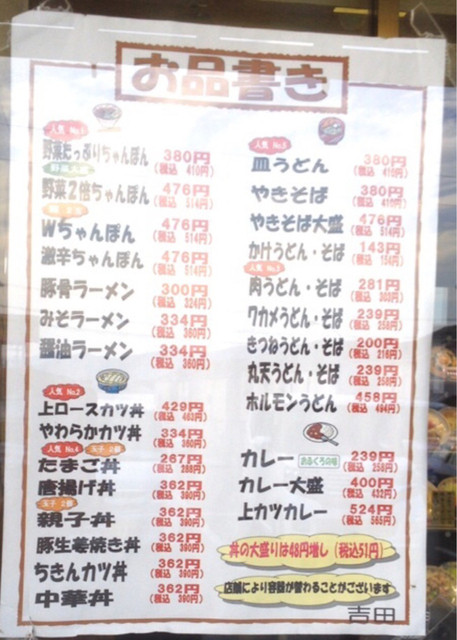 お品書き
人気 No.1
野菜たっぷりちゃんぽん 380円
(税込 410円)
野菜2倍ちゃんぽん 476円
(税込 514円)
Wちゃんぽん 476円
(税込 514円)
激辛ちゃんぽん 476円
(税込 514円)
豚骨ラーメン 300円
(税込 324円)
みそラーメン 334円
(税込 360円)
醤油ラーメン 334円
(税込 360円)
人気 No.2
上ロースカツ丼 429円
(税込 463円)
やわらかカツ丼 334円
(税込 360円)
人気 No.4 玉子 2個
たまご丼 267円
(税込 288円)
唐揚げ丼 362円
(税込 390円)
玉子 2個
親子丼 362円
(税込 390円)
豚生姜焼き丼 362円
(税込 390円)
ちきんカツ丼 362円
(税込 390円)
中華丼 362円
(税込 390円)
人気
皿うどん 380円
(税込 410円)
やきそば 380円
(税込 410円)
やきそば大盛 476円
(税込 514円)
かけうどん・そば 143円
(税込 154円)
人気
肉うどん・そば 281円
(税込 303円)
ワカメうどん・そば 239円
(税込 258円)
きつねうどん・そば 200円
(税込 216円)
丸天うどん・そば 239円
(税込 258円)
ホルモンうどん 458円
(税込 494円)
カレー おふくろの味 239円
(税込 258円)
カレー大盛 400円
(税込 432円)
上カツカレー 524円
(税込 565円)
丼の大盛りは48円増し (税込51円)
店舗により容器が替わることがございます
吉田